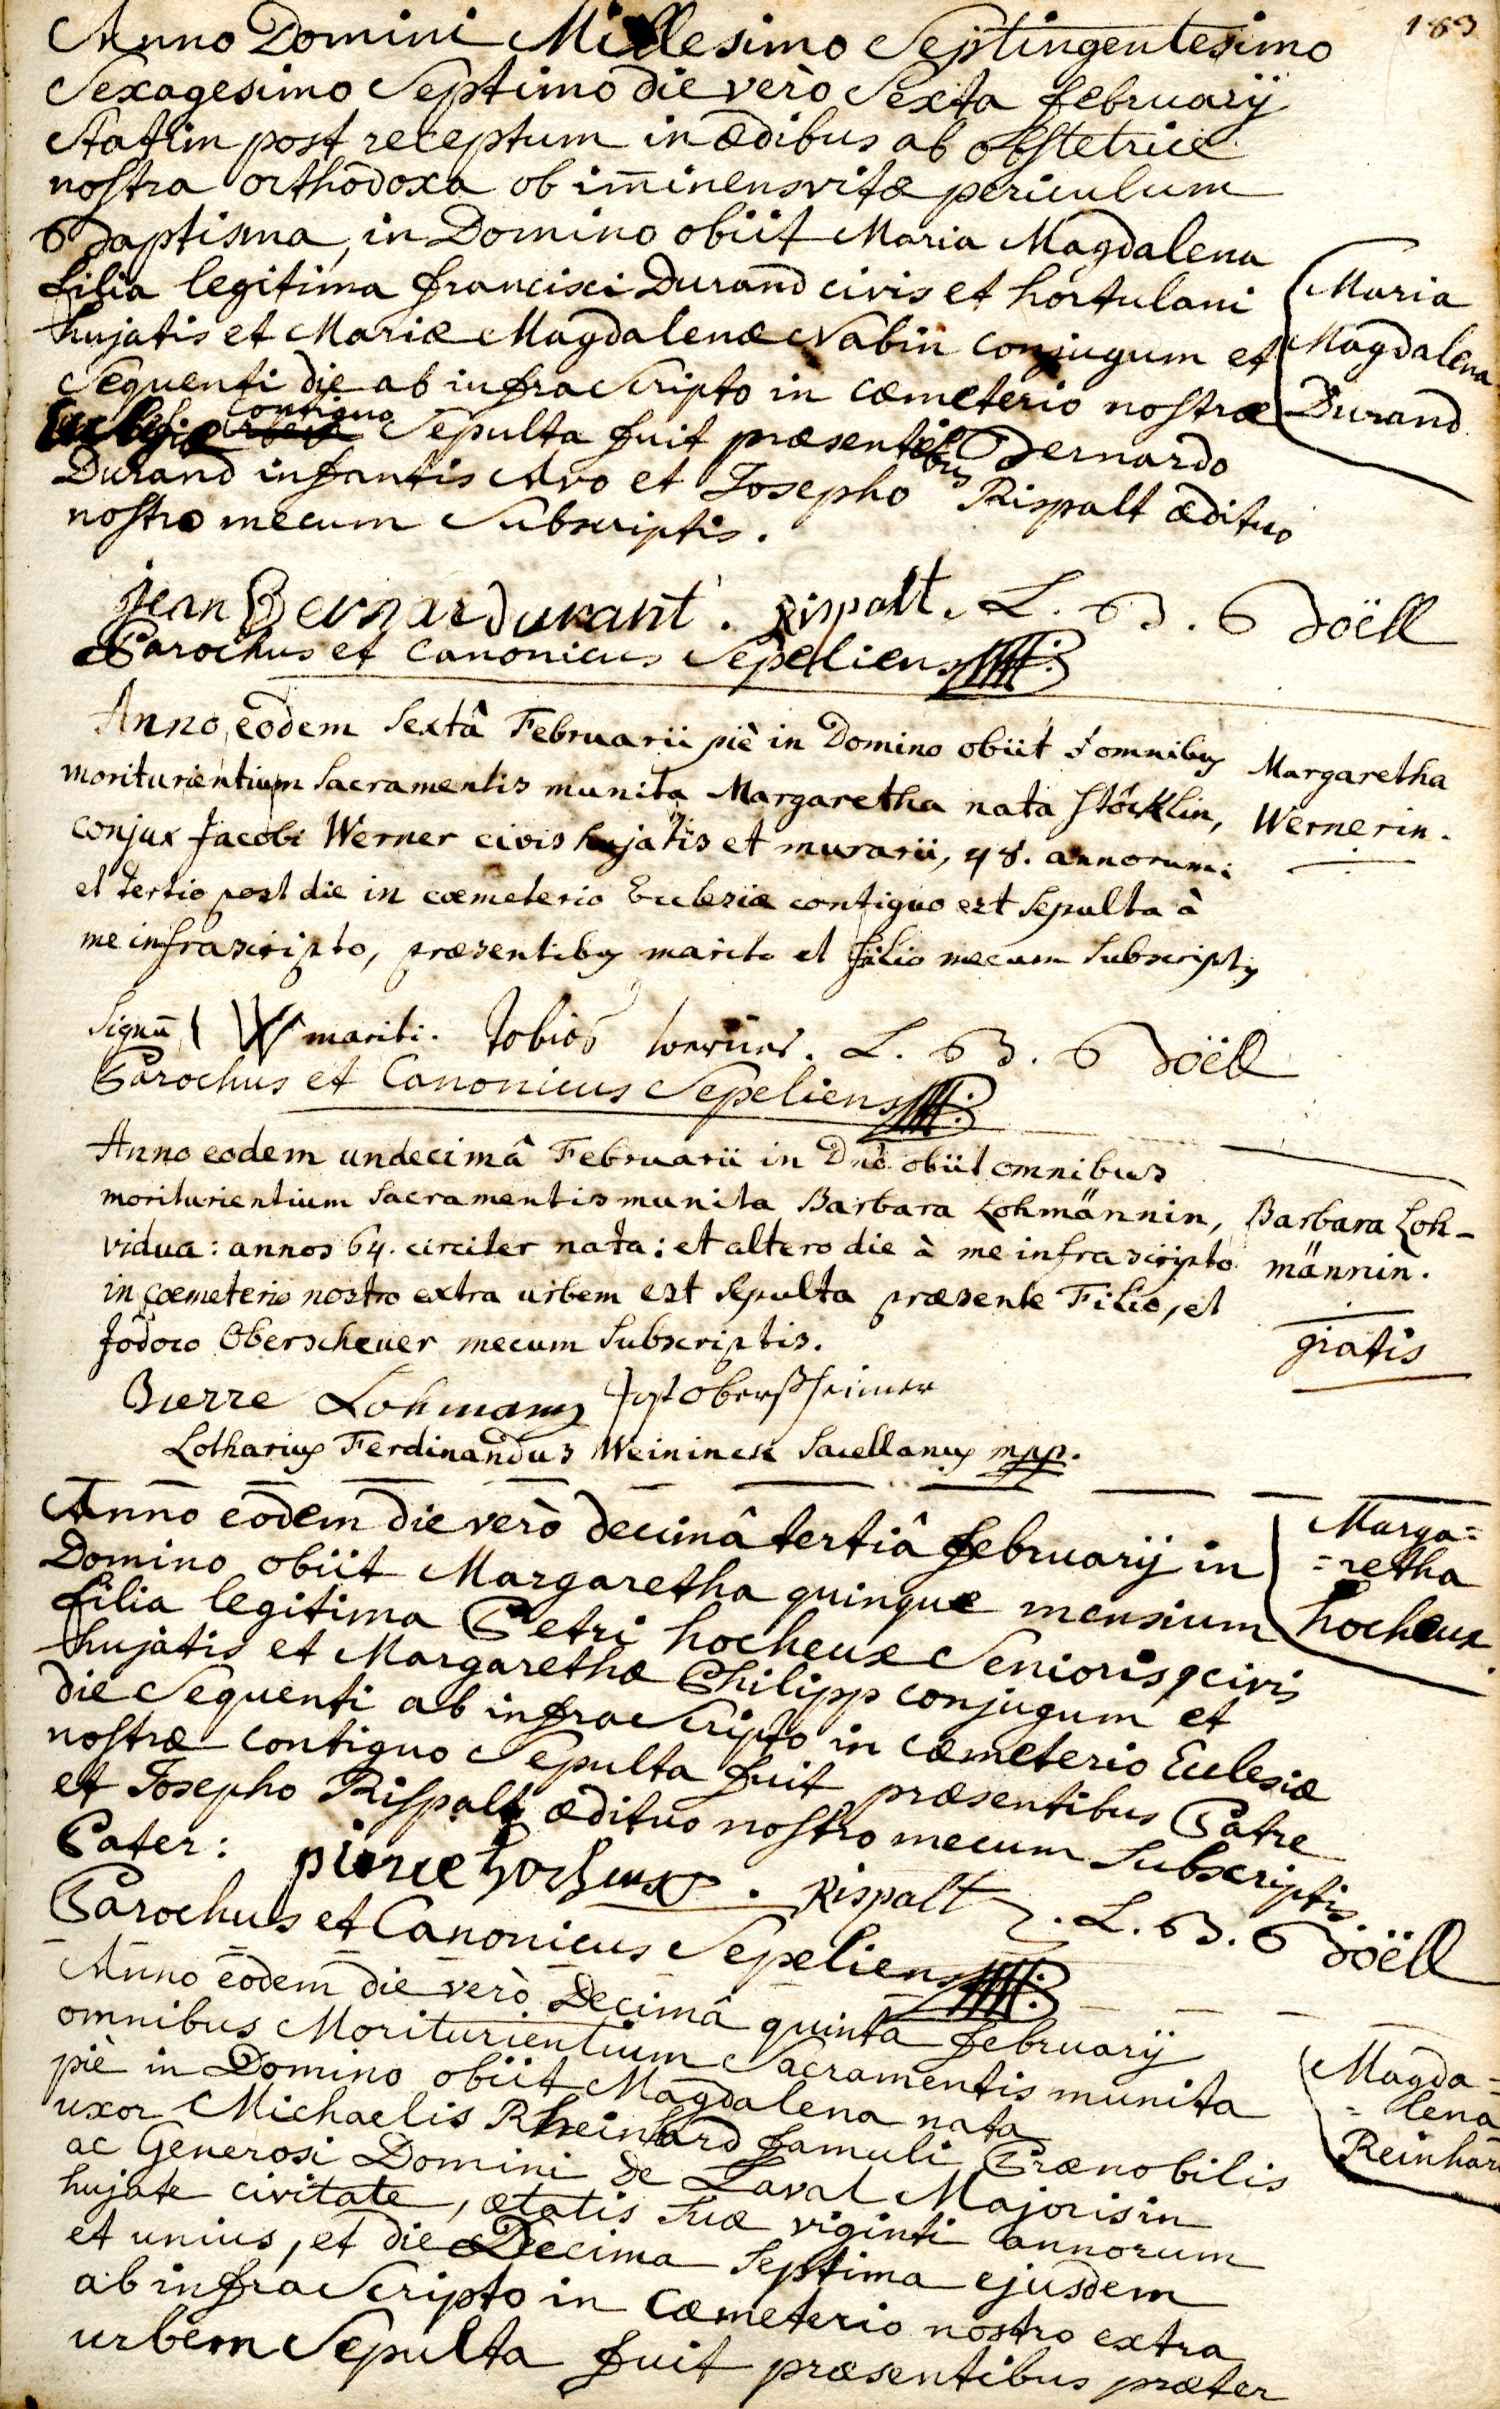 183
Anno Domini Millesimo Septingentesimo
Sexagesimo Septimo die verò Sexta february
Statim post receptum in ædibus ab obstetrice
nostra orthodoxa ob iminens vitæ periculum
baptisma, in Domino obiit Maria Magdalena
filia legitima francisci Durand civis et hortulani
hujatis et Mariæ Magdalenæ Nabin conjugum et
Sequenti die ab infra Scripto in cœmeterio nostræ
Ecclesiæ contiguo Sepulta fuit præsentibus Bernardo
Durand infantis Avo et Josepho Rispalt ædituo
nostro mecum Subscriptis.
Maria
Magdalena
Durand
jean Bernard durant. Rispalt. L. B. Boëll
Parochus et Canonicus Sepeliens
Anno eodem Sextâ Februarii piè in Domino obiit omnibus
moriturientium Sacramentis munita Margaretha nata Stöcklin,
conjux Jacobi Werner civis hujatis et murarii, 48. annorum:
et tertio post die in cœmeterio Ecclesiæ contiguo est Sepulta à
me infrascripto, præsentibus marito et filio mecum Subscriptis
Margaretha
Wernerin.
Signū W mariti. Tobias werner. L. B. Boëll
Parochus et Canonicus Sepeliens
Anno eodem undecimâ Februarii in Dno obiit omnibus
moriturientium Sacramentis munita Barbara Lohmännin,
vidua: annos 64. circiter nata: et altero die à me infrascripto
in cœmeterio nostro extra urbem est Sepulta præsente Filio, et
Jodoco Oberscheuer mecum Subscriptis.
Barbara Loh-
männin.
gratis
Bierre Lohmann Jost
Lotharius Ferdinandus Weininck Sacellanus mpp.
Anno eodem die verò decimâ tertiâ february in
Domino obiit Margaretha quinque mensium
filia legitima Petri hocheux Senioris civis
hujatis et Margarethæ Philipp conjugum et
die Sequenti ab infra Scripto in cœmeterio Ecclesiæ
nostræ contiguo Sepulta fuit præsentibus Patre
et Josepho Rispalt ædituo nostro mecum Subscriptis
Marga=
=retha
hocheux.
Pater: pierre hocheux. Rispalt. L. B. Boëll
Parochus et Canonicus Sepeliens
Anno eodem die verò Decimâ quinta february
omnibus Moriturientium Sacramentis munita
piè in Domino obiit Magdalena nata
uxor Michaelis Rheinhard famuli Prænobilis
ac Generosi Domini de Laval Majoris in
hujate civitate, ætatis Suæ viginti annorum
et unius, et die Decima Septima ejusdem
ab infra Scripto in cœmeterio nostro extra
urbem Sepulta fuit præsentibus præter
Magda=
=lena
Reinhard